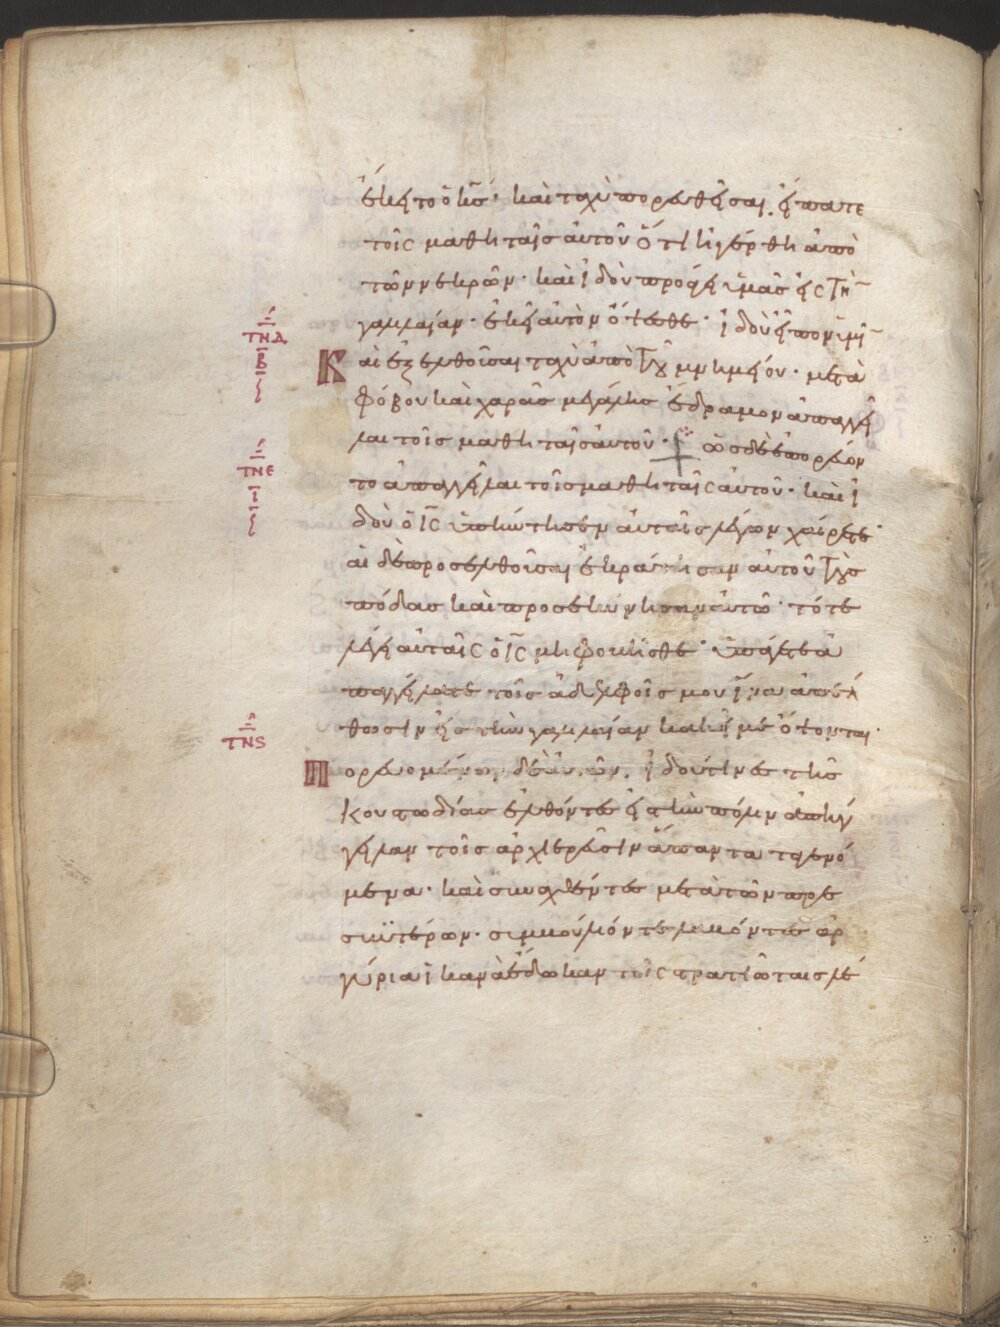 ἔκητο ὁ κ̅ς̅· καὶ ταχὺ πορευθεῖσαι. εἴπατε
τοῖς μαθηταῖς αὐτοῦ ὅτι ἠγέρθη ἀπὸ
τῶν νεκρῶν· καὶ ἰδοὺ προάγει ὑμᾶς εἰς τὴν
γαλιλαίαν· ἐκεῖ αὐτὸν ὄψεσθε· ἰδοὺ εἶπον ὑμῖν
ΤΝΔ
Β
Καὶ ἐξελθοῦσαι ταχὺ ἀπὸ τοῦ μνημείου· μετὰ
φόβου καὶ χαρᾶς μεγάλης ἔδραμον ἀπαγγεῖ
λαι τοῖς μαθηταῖς αὐτοῦ· ὡς δὲ ἐπορεύον
ΤΝΕ
Ι
το ἀπαγγεῖλαι τοῖς μαθηταῖς αὐτοῦ· καὶ ἰ
δοὺ ὁ ι̅ς̅ ὑπήντησεν αὐταῖς λέγων χαίρετε·
αἱ δὲ προσελθοῦσαι ἐκράτησαν αὐτοῦ τοὺς
πόδας καὶ προσεκύνησαν αὐτῶ· τότε
λέγει αὐταῖς ὁ ι̅ς̅ μὴ φοβεῖσθε· ὑπάγετε ἀ
παγγείλατε τοῖς ἀδελφοῖς μου ἵνα ἀπέλ
θωσιν εἰς τὴν γαλιλαίαν κακεῖ με ὄψονται·
ΤΝϚ
Πορευομένων δὲ αὐτῶν. ἰδού τινες τῆς
κουστωδίας ἐλθόντες εἰς τὴν πόλιν ἀπήγ
γειλαν τοῖς ἀρχιερεῦσιν ἅπαντα τὰ γενό
μενα· καὶ συναχθέντες μετὰ τῶν πρε
σβυτέρων· συμβούλιόν τε λαβόντες ἀρ
γύρια ἱκανὰ ἔδωκαν τοῖς στρατιώταις λέ